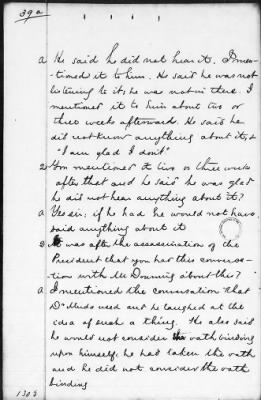 39a
A He said he did not hear it. I men-
tioned it to him. He said he was not
listening to it; he was not in there. I
mentioned it to him about two or
three weeks afterward. He said he
did not know anything about it, &
"I am glad I don't"
Q You mentioned it two or three weeks
after that and he said he was glad
he did not hear anything about it?
A Yes sir; if he had he would not have
said anything about it
Q It was after the assassination of the
President that you had this conversa-
tion with Mr Downing about this?
A I mentioned the conversation that
Dr Mudd used and he laughed at the
idea of such a thing. He also said
he would not consider the oath binding
upon himself; he had taken the oath
and he did not consider the oath
binding